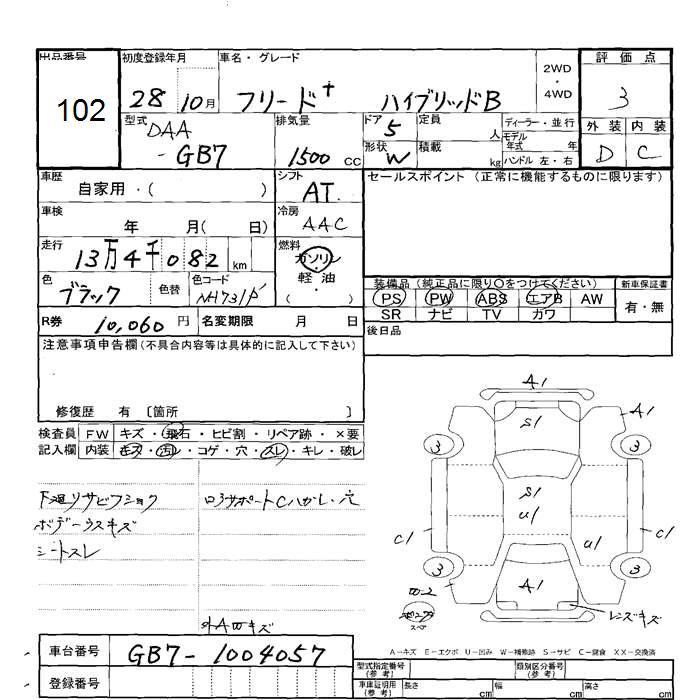 出品番号 初度登録年月 車名・グレード 2WD ・ 4WD 評価点
102 28 10月 フリード+ ハイブリッドB 3
型式 DAA-GB7 排気量 1500 cc ドア 5 定員 人 ディーラー・並行 外装 内装
形状 W 積載 kg モデル年式 年 ハンドル 左・右 D C
車歴 自家用・( ) シフト AT セールスポイント (正常に機能するものに限ります)
車検 年 月( 日) 冷房 AAC
走行 13万4千082 km 燃料 ガソリン 軽油 ・( )
色 ブラック 色替 色コード NH731P
装備品 (純正品に限り○をつけてください) 新車保証書
PS PW ABS エアB AW 有・無
SR ナビ TV カワ
R券 10,060 円 名変期限 月 日 後日品
注意事項申告欄 (不具合内容等は具体的に記入して下さい)
修復歴 有 〔箇所 〕
検査員 FW キズ・飛石・ヒビ割・リペア跡・×要
記入欄 内装 キズ・汚レ・コゲ・穴・スレ・キレ・破レ
下廻リサビフショク ロアサポートCハガレ・穴
ボデーウスキズ
シートスレ
外A凹キズ
A1
S1 A1
3 3
S1
U1
C1 U1 C1
3 3
A1
凹2 レンズキズ
スペア
A-キズ E-エクボ U-凹み W-補修跡 S-サビ C-腐食 XX-交換済
車台番号 GB7-1004057
登録番号
型式指定番号 (参考) 類別区分番号 (参考)
車庫証明用 (参考) 長さ cm 幅 cm 高さ cm